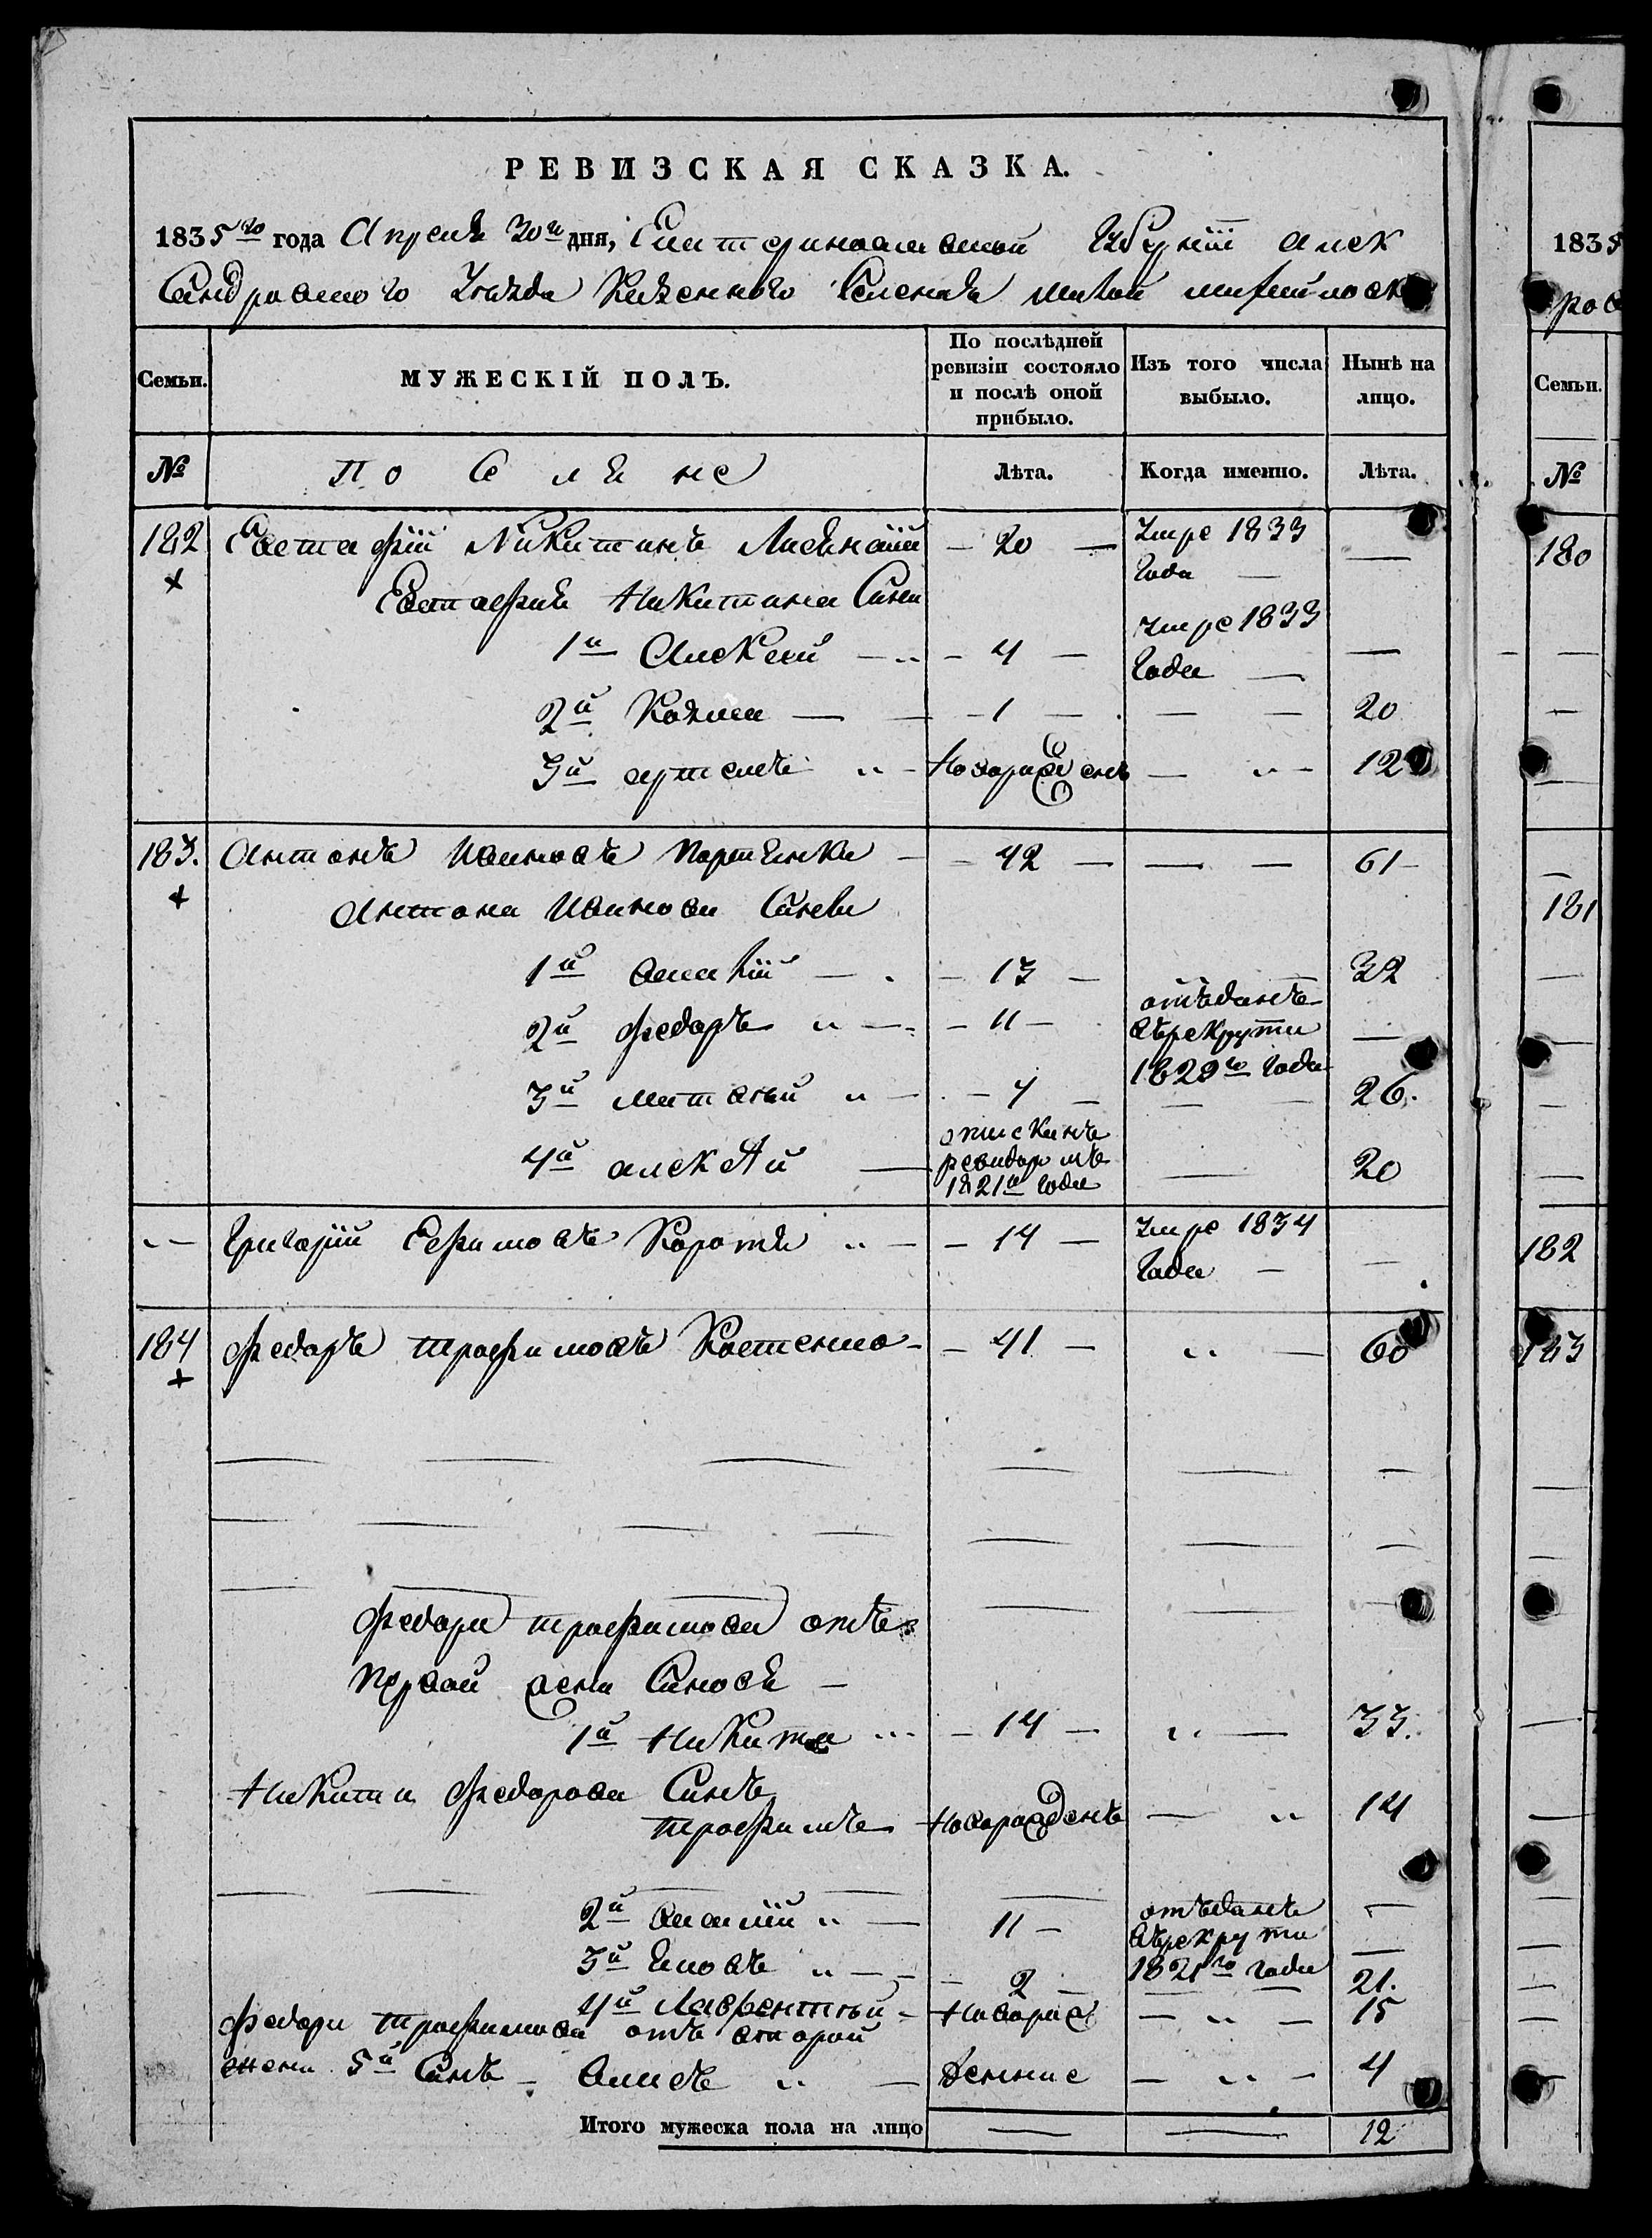 РЕВИЗСКАЯ СКАЗКА.
1835го года Апреля 30го дня, Екатеринославской Губернiи Алек
Сандровского Уезда Казенного Селения малой михайловк
Семьи. МУЖЕСКIЙ ПОЛЪ. По послѣдней ревизiи состояло и послѣ оной прибыло. Изъ того числа выбыло. Нынѣ на лицо.
№ Поселяне Лѣта. Когда именно. Лѣта.
182 Евстафiй Никитинъ 20 умре 1833 года —
Евстафия Никитина Сини
1й Алексей 4 умре 1833 года —
2й Козма 1 — 20
3й артемъ Новорожденъ — 12
183. Антонъ Ивановъ 42 — 61
Антона Иванова Синеви
1й 13 — 32
2й Федоръ 11 отъданъ върекрути 1829го года —
3й матвей 7 — 26.
4й алексѣй ревизором 1821й года — 20
Григорiй Ефимовъ Коротя 14 умре 1834 года —
184 Федоръ трофимовъ Костенко 41 — 60
Федора трофимова отъ
первой жени Синовя
1й Никита 14 — 33.
Никити Федорова Синъ
трофимъ Новорожденъ — 14
2й Василiй 11 отъданъ върекрути 1821го года —
3й Яковъ 2 — 21.
4й Лаврентий Новорож — 15
Федора трофимова отъ второй
жени 5й Синъ денние — 4
Итого мужеска пола на лицо — — 12
1835
Семьи.
№
180
181
182
183